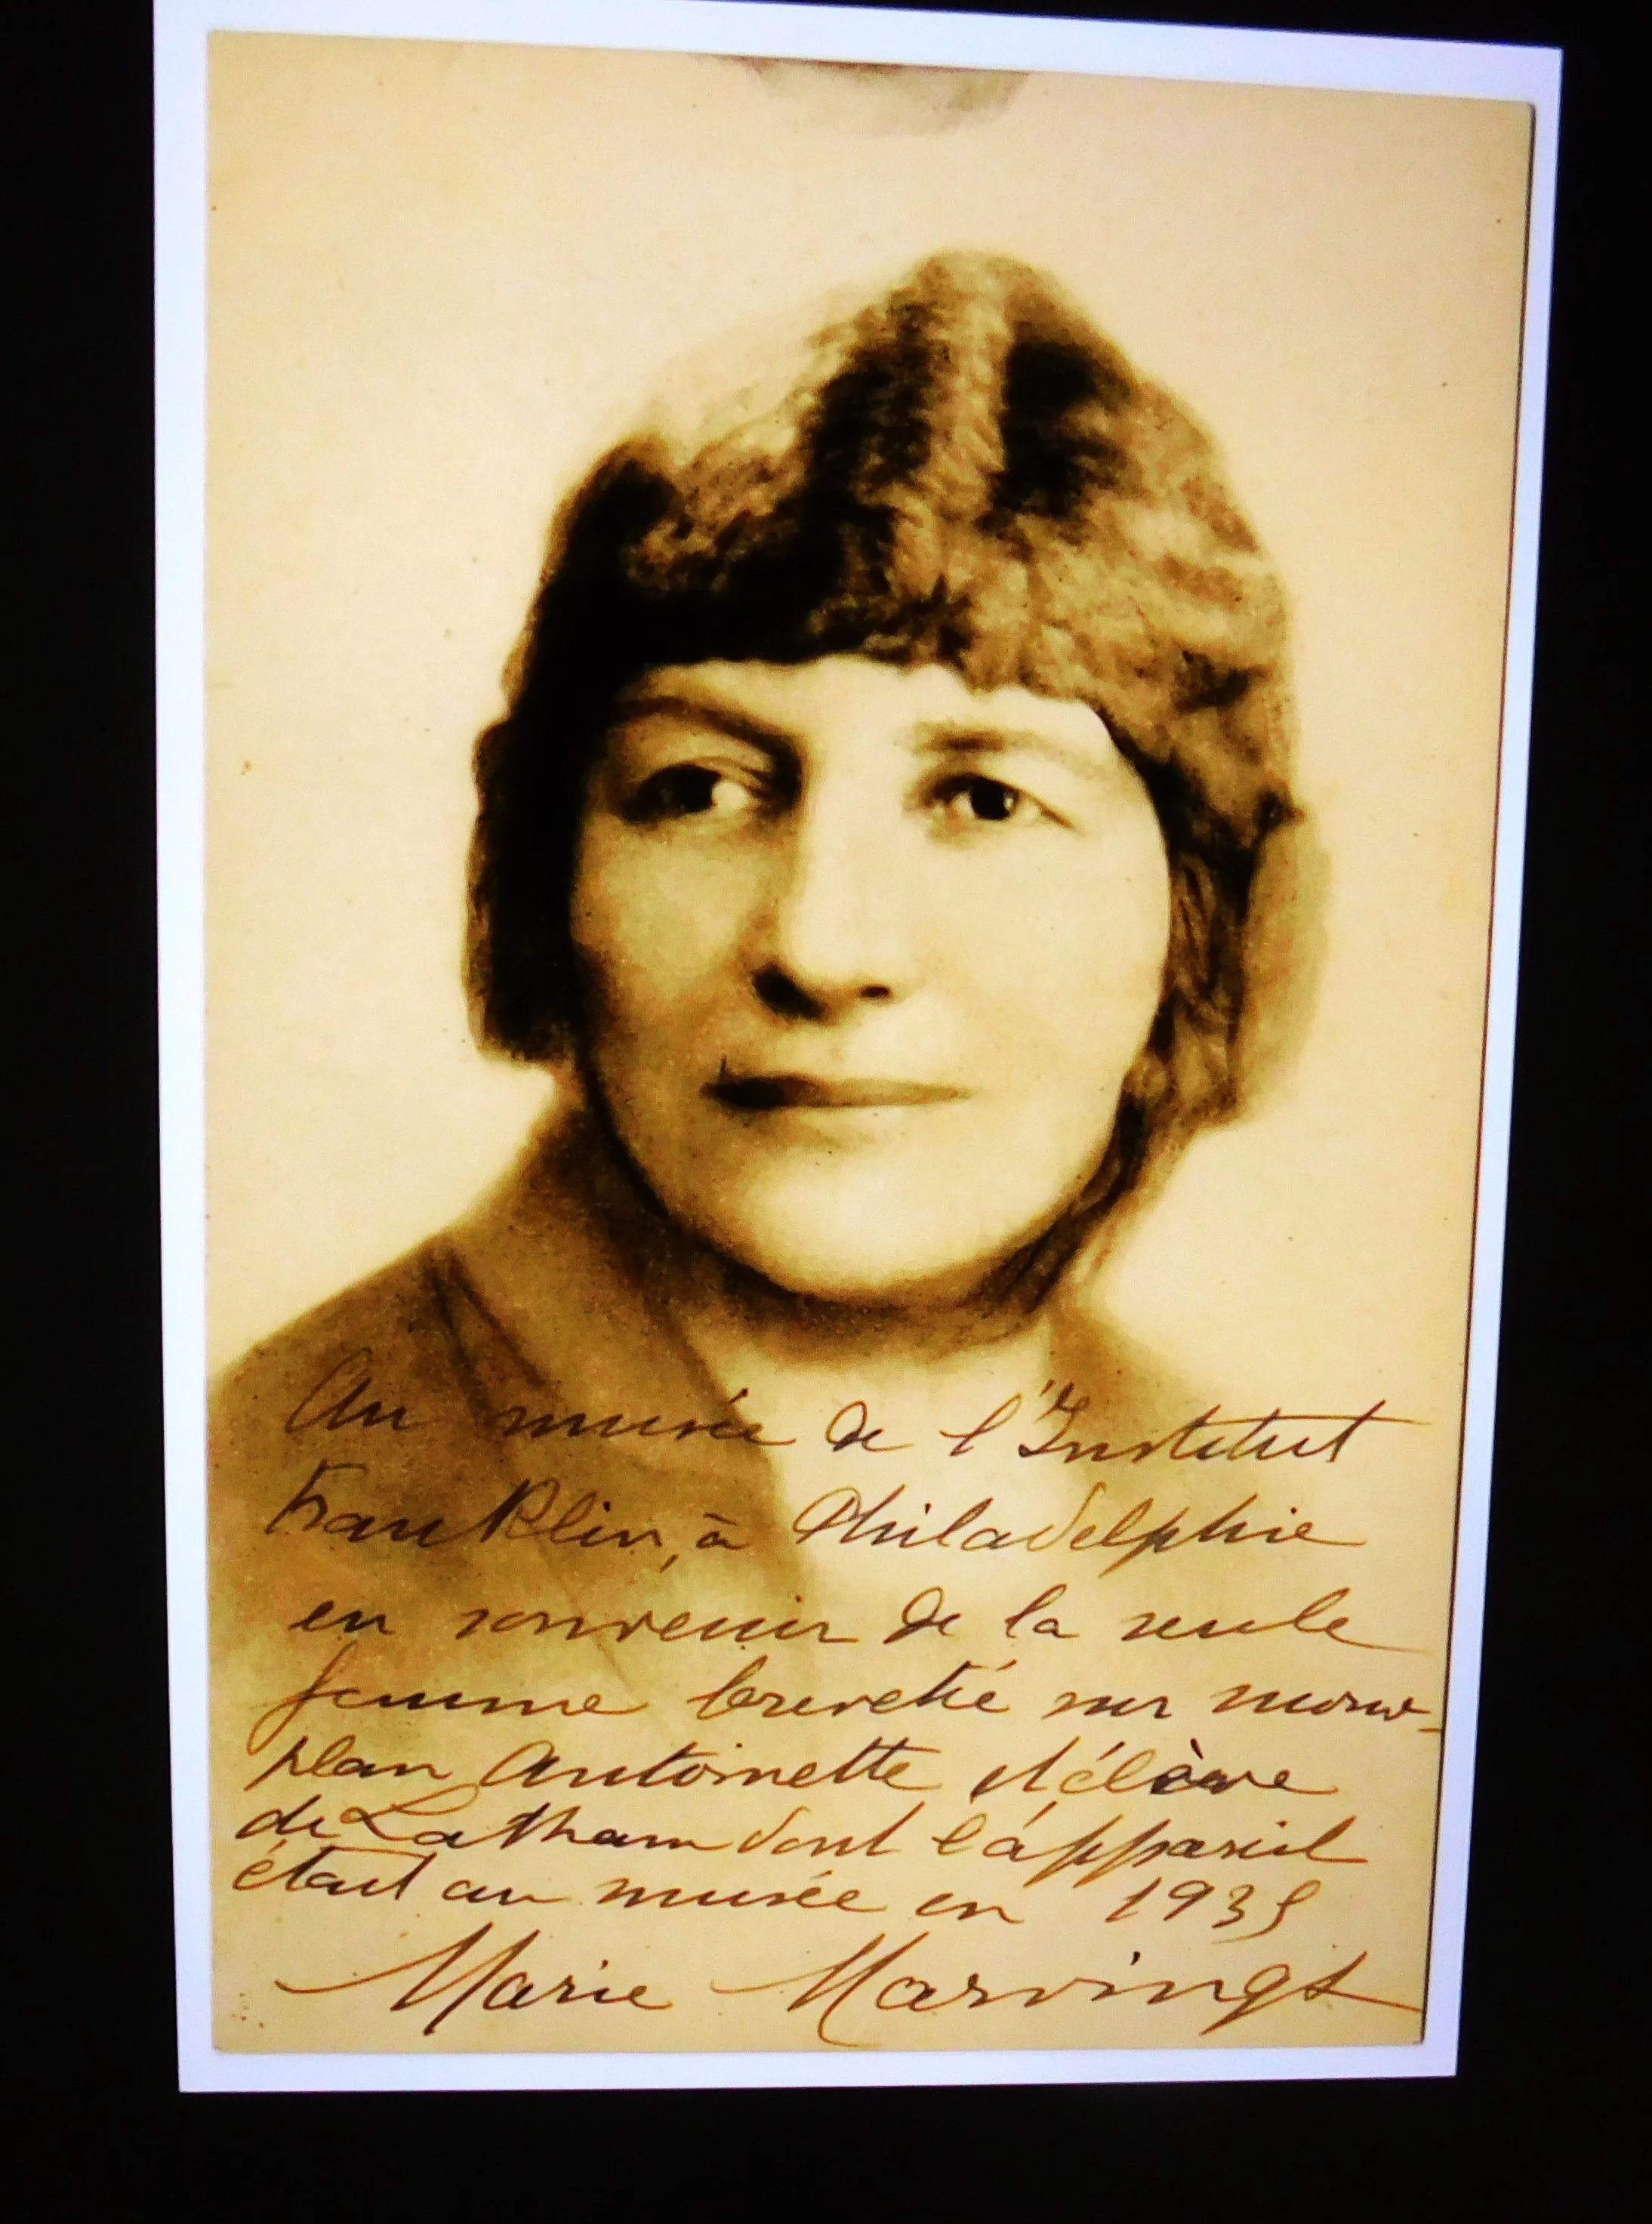 Au musée de l'Institut
Franklin, à Philadelphie
en souvenir de la seule
femme brevetée sur mono-
plan Antoinette et élève
de Latham dont l'appareil
était au musée en 1935
Marie Marvingt